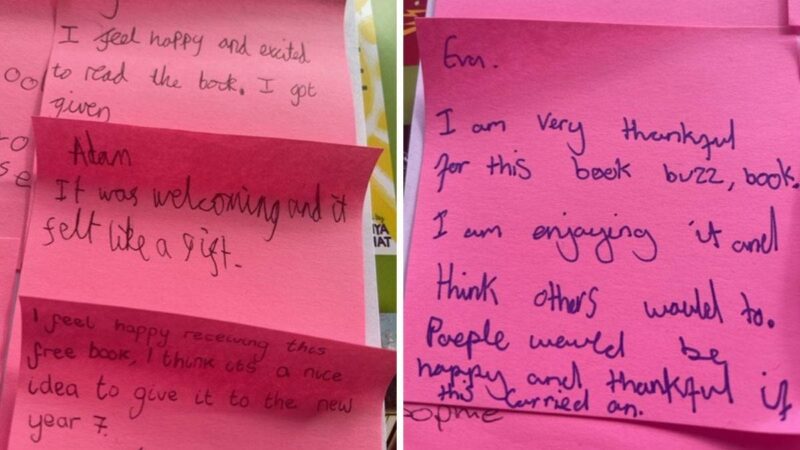 I feel happy and excited
to read the book. I got
given
Adam
It was welcoming and it
felt like a gift.
I feel happy receiving this
free book, I think it's a nice
idea to give it to the new
year 7.
Eva.
I am very thankful
for this book buzz, book.
I am enjoying it and
think others would to.
People would be
happy and thankful if
this carried on.
Sophie